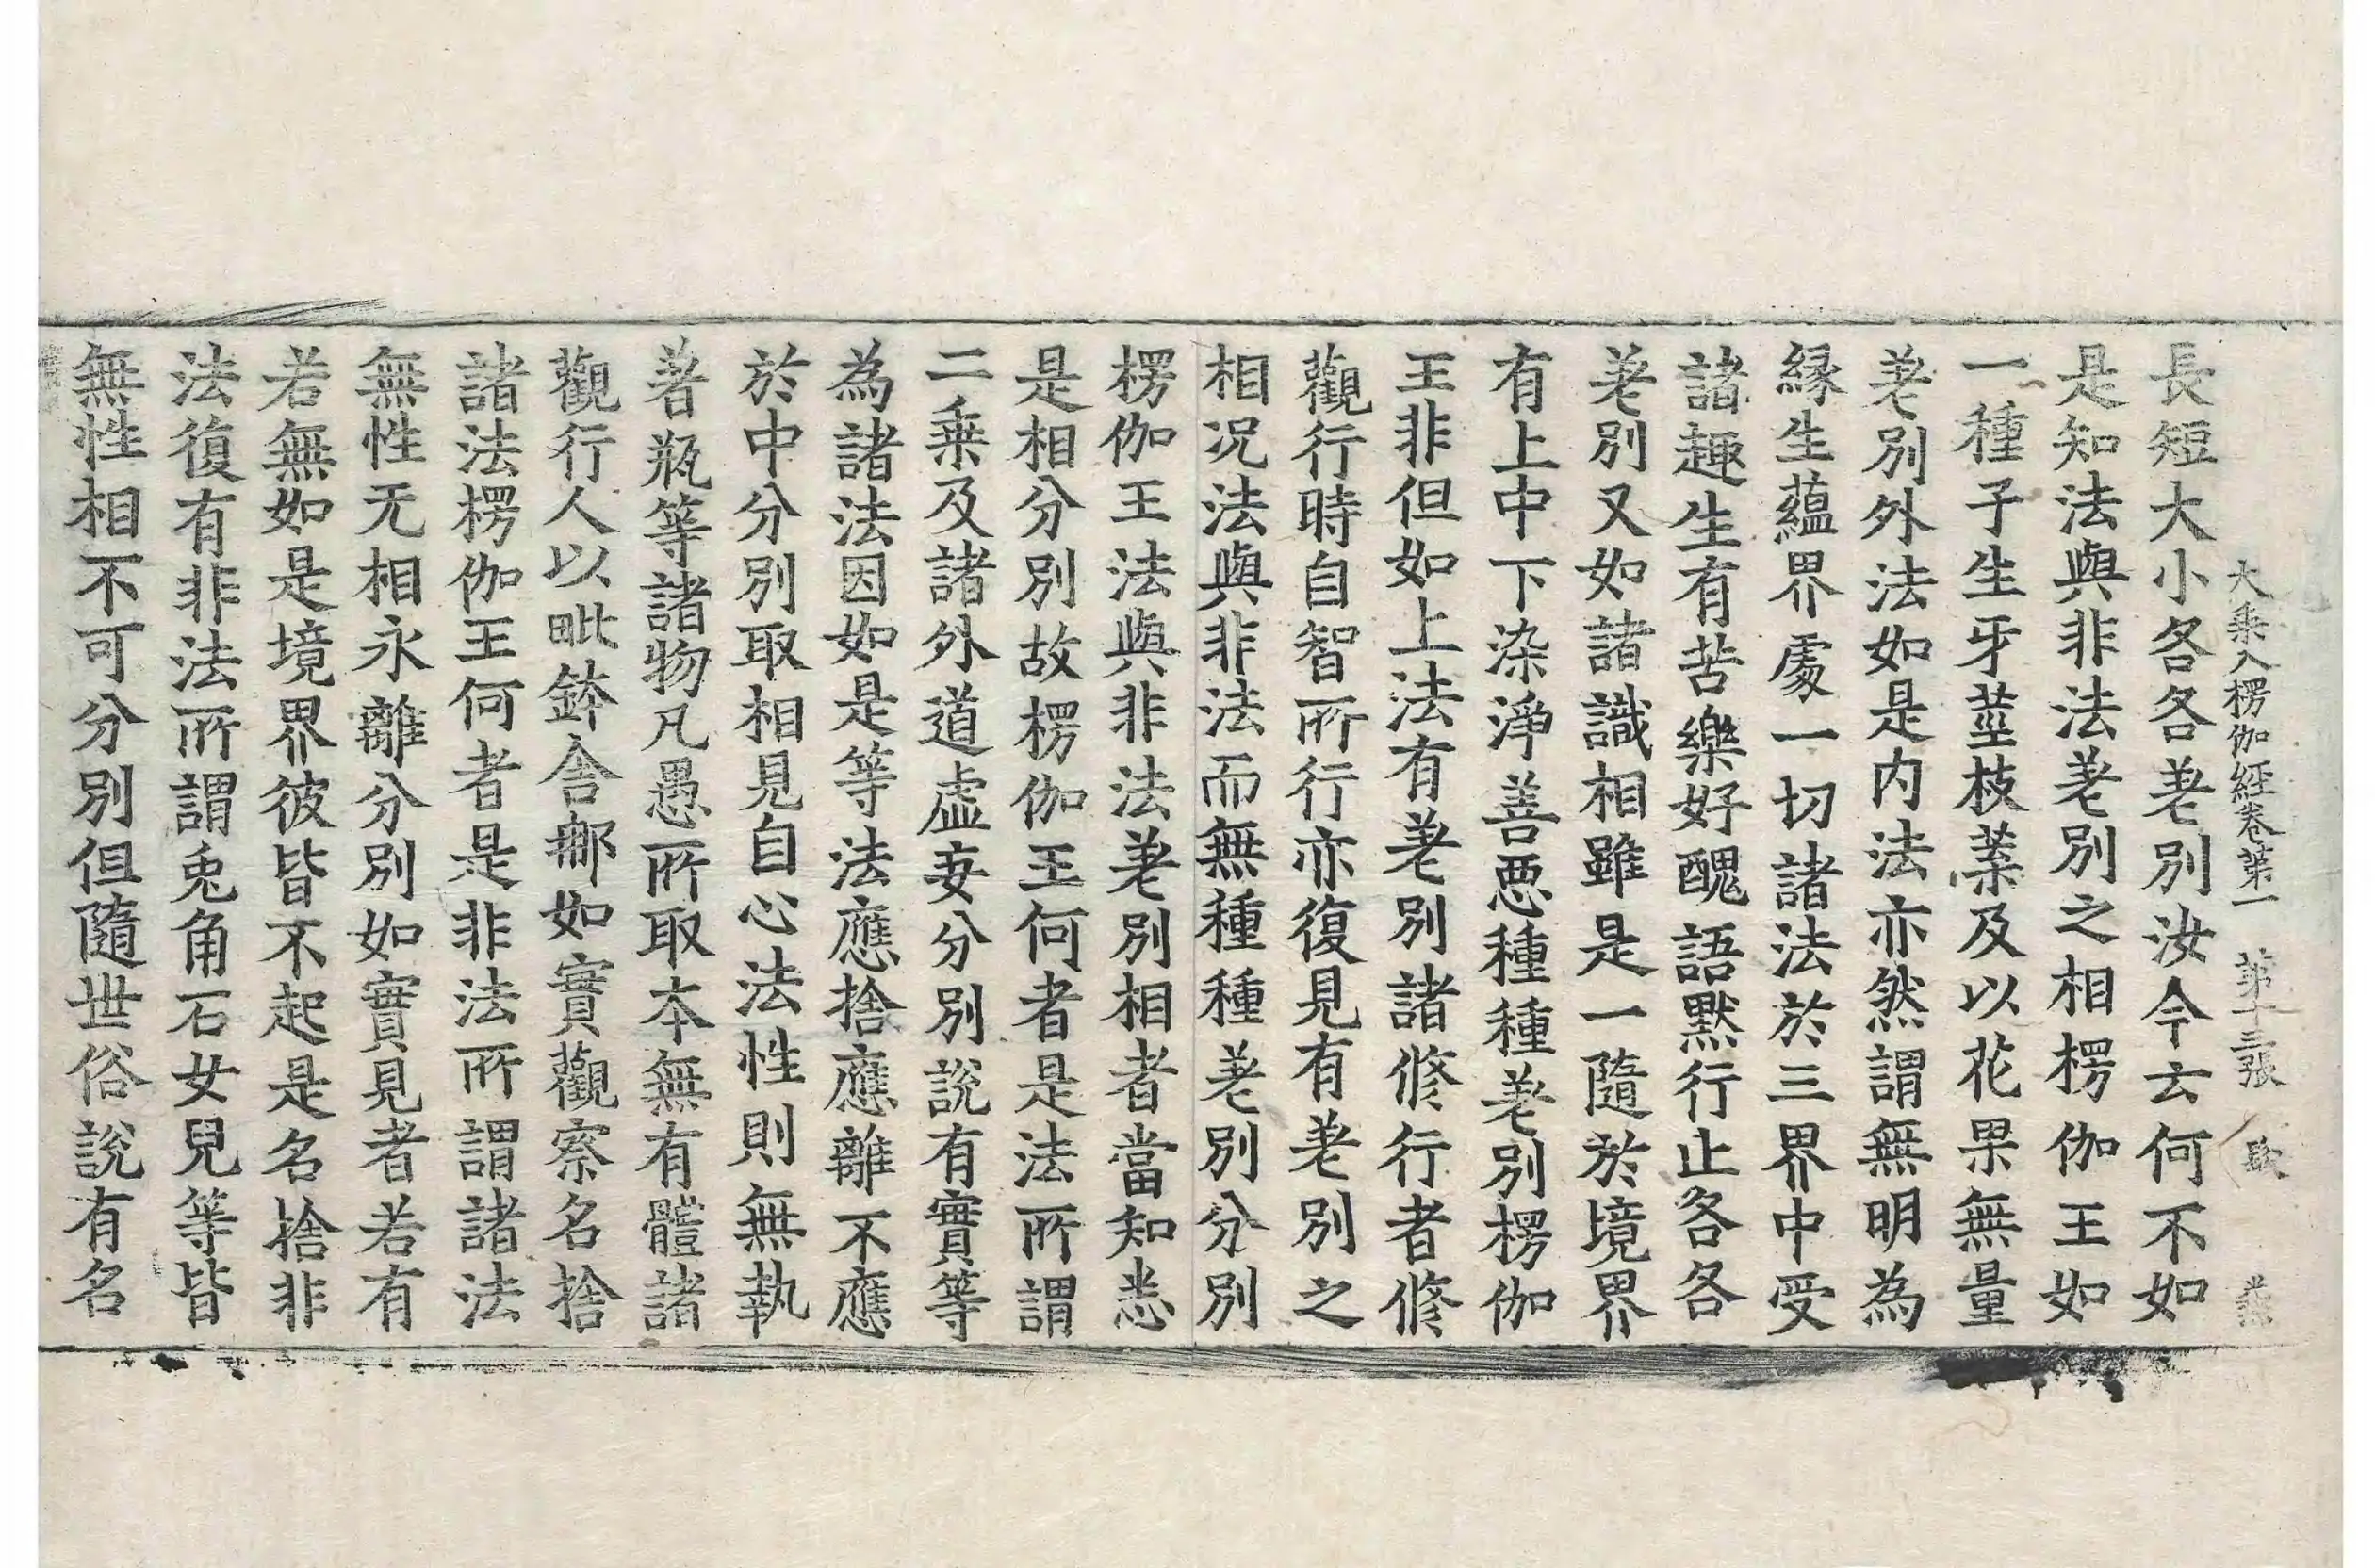 大乗入楞伽經卷第一 第十三張 歌
長短大小各各差別汝今云何不如
是知法與非法差別之相楞伽王如
一種子生牙莖枝葉及以花果無量
差別外法如是内法亦然謂無明為
縁生蘊界處一切諸法於三界中受
諸趣生有苦樂好醜語默行止各各
差別又如諸識相雖是一隨於境界
有上中下染淨善惡種種差別楞伽
王非但如上法有差別諸修行者修
觀行時自智所行亦復見有差別之
相况法與非法而無種種差別分別
楞伽王法與非法差別相者當知悉
是相分別故楞伽王何者是法所謂
二乗及諸外道虚妄分別說有實等
為諸法因如是等法應捨應離不應
於中分別取相見自心法性則無執
著瓶等諸物凡愚所取本無有體諸
觀行人以毗鉢舍那如實觀察名捨
諸法楞伽王何者是非法所謂諸法
無性无相永離分別如實見者若有
若無如是境界彼皆不起是名捨非
法復有非法所謂兎角石女兒等皆
無性相不可分別但隨世俗說有名